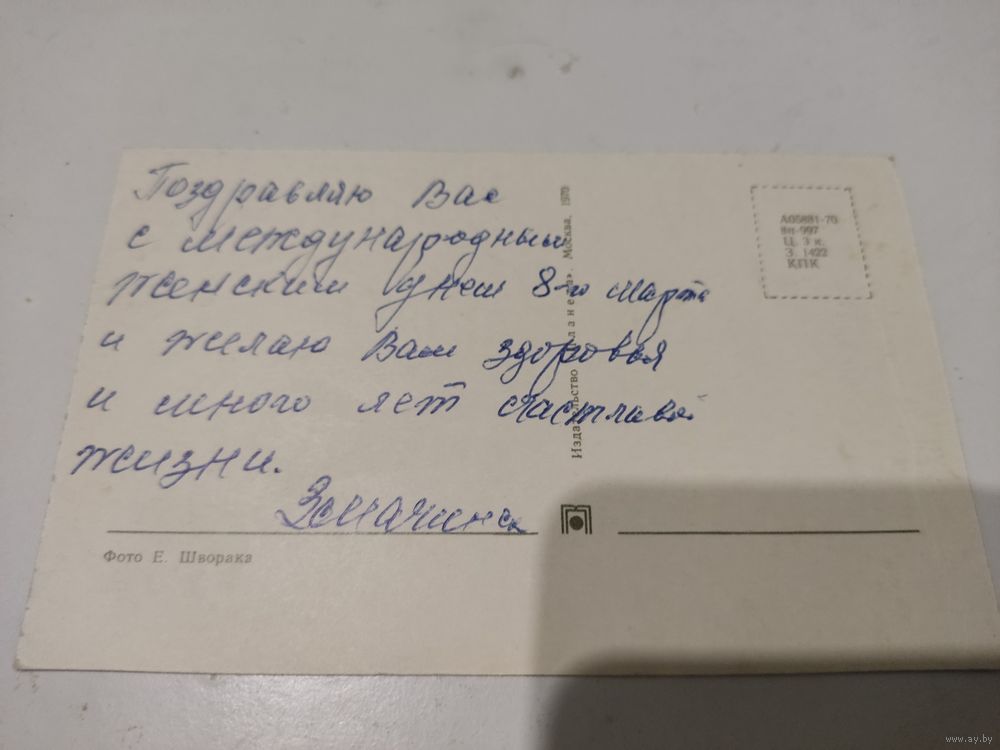 Поздравляю Вас
с международным
женским днем 8-го марта
и желаю Вам здоровья
и много лет счастливой
жизни.
Фото Е. Шворака
Издательство «Планета». Москва. 1970
А05881-70
вп-997
Ц. 3 к.
З. 1422
КПК
www.ay.by